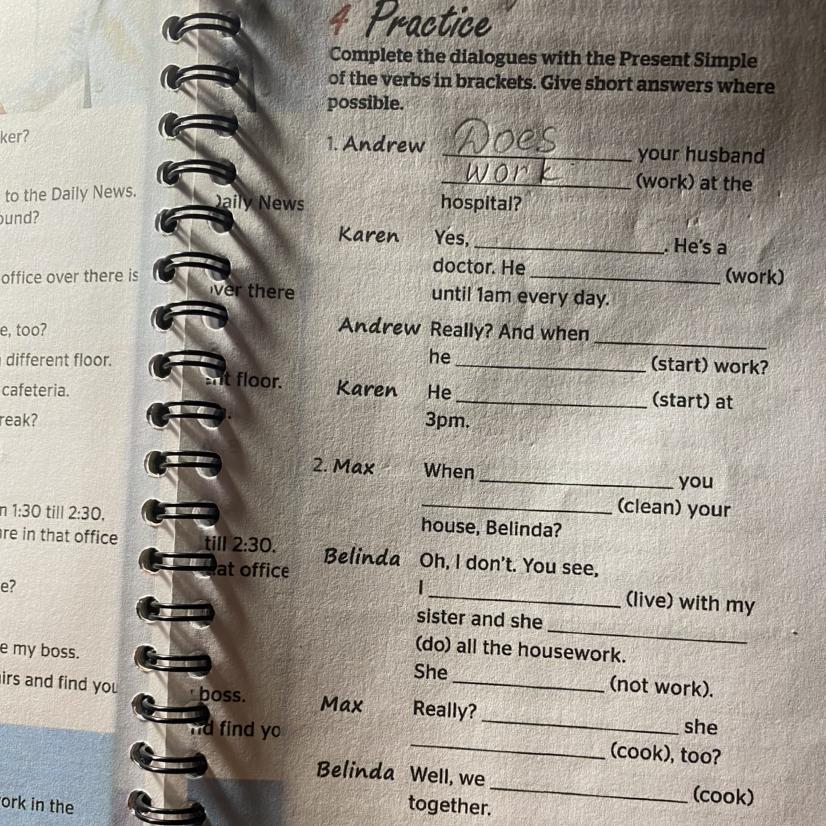 4 Practice
Complete the dialogues with the Present Simple
of the verbs in brackets. Give short answers where
possible.
1. Andrew Does your husband
work (work) at the
hospital?
Karen Yes, ____. He's a
doctor. He ____ (work)
until 1am every day.
Andrew Really? And when ____
he ____ (start) work?
Karen He ____ (start) at
3pm.
2. Max When ____ you
____ (clean) your
house, Belinda?
Belinda Oh, I don't. You see,
I ____ (live) with my
sister and she ____
(do) all the housework.
She ____ (not work).
Max Really? ____ she
____ (cook), too?
Belinda Well, we ____ (cook)
together.
ker?
to the Daily News.
ound?
office over there is
e, too?
different floor.
cafeteria.
reak?
n 1:30 till 2:30,
are in that office
e?
e my boss.
airs and find you
ork in the
Daily News
over there
ent floor.
till 2:30.
at office
boss.
nd find yo